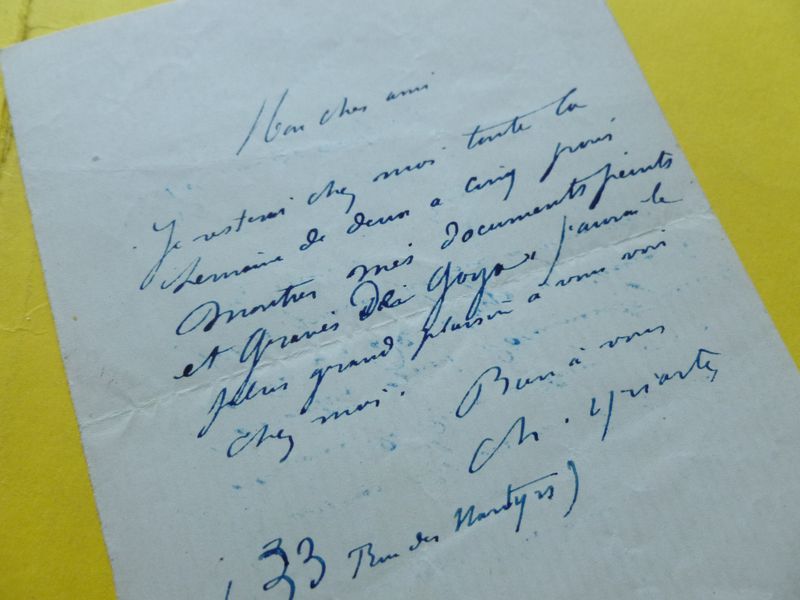 Mon cher ami
Je resterai chez moi toute la
semaine de deux a cinq pour
montrer mes documents peints
et gravés de Goya, j'aurai le
plus grand plaisir à vous voir
chez moi. Bien à vous
Ch. Yriarte
(33 Rue des Martyrs)